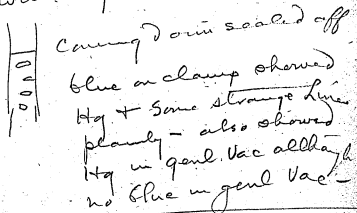 Coming down sealed off
blue on clamp showed
Hg + some strange lines
plainly - also showed
Hg in genl. Vac although
no blue in genl Vac -